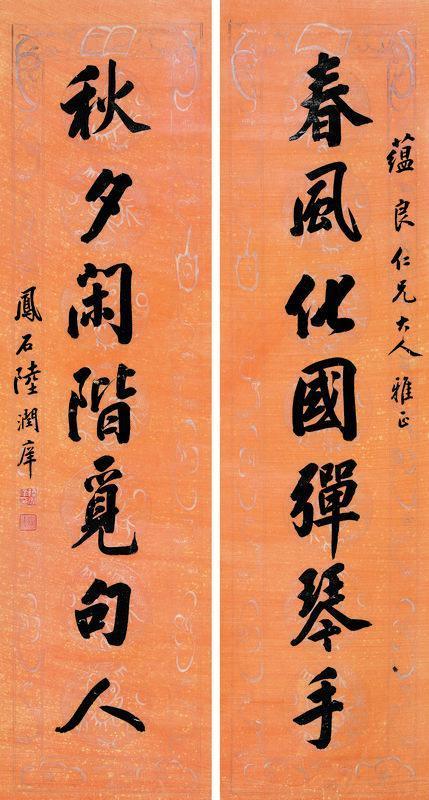 蕴良仁兄大人雅正
春風化國彈琴手
秋夕閑階覓句人
鳳石陸潤庠